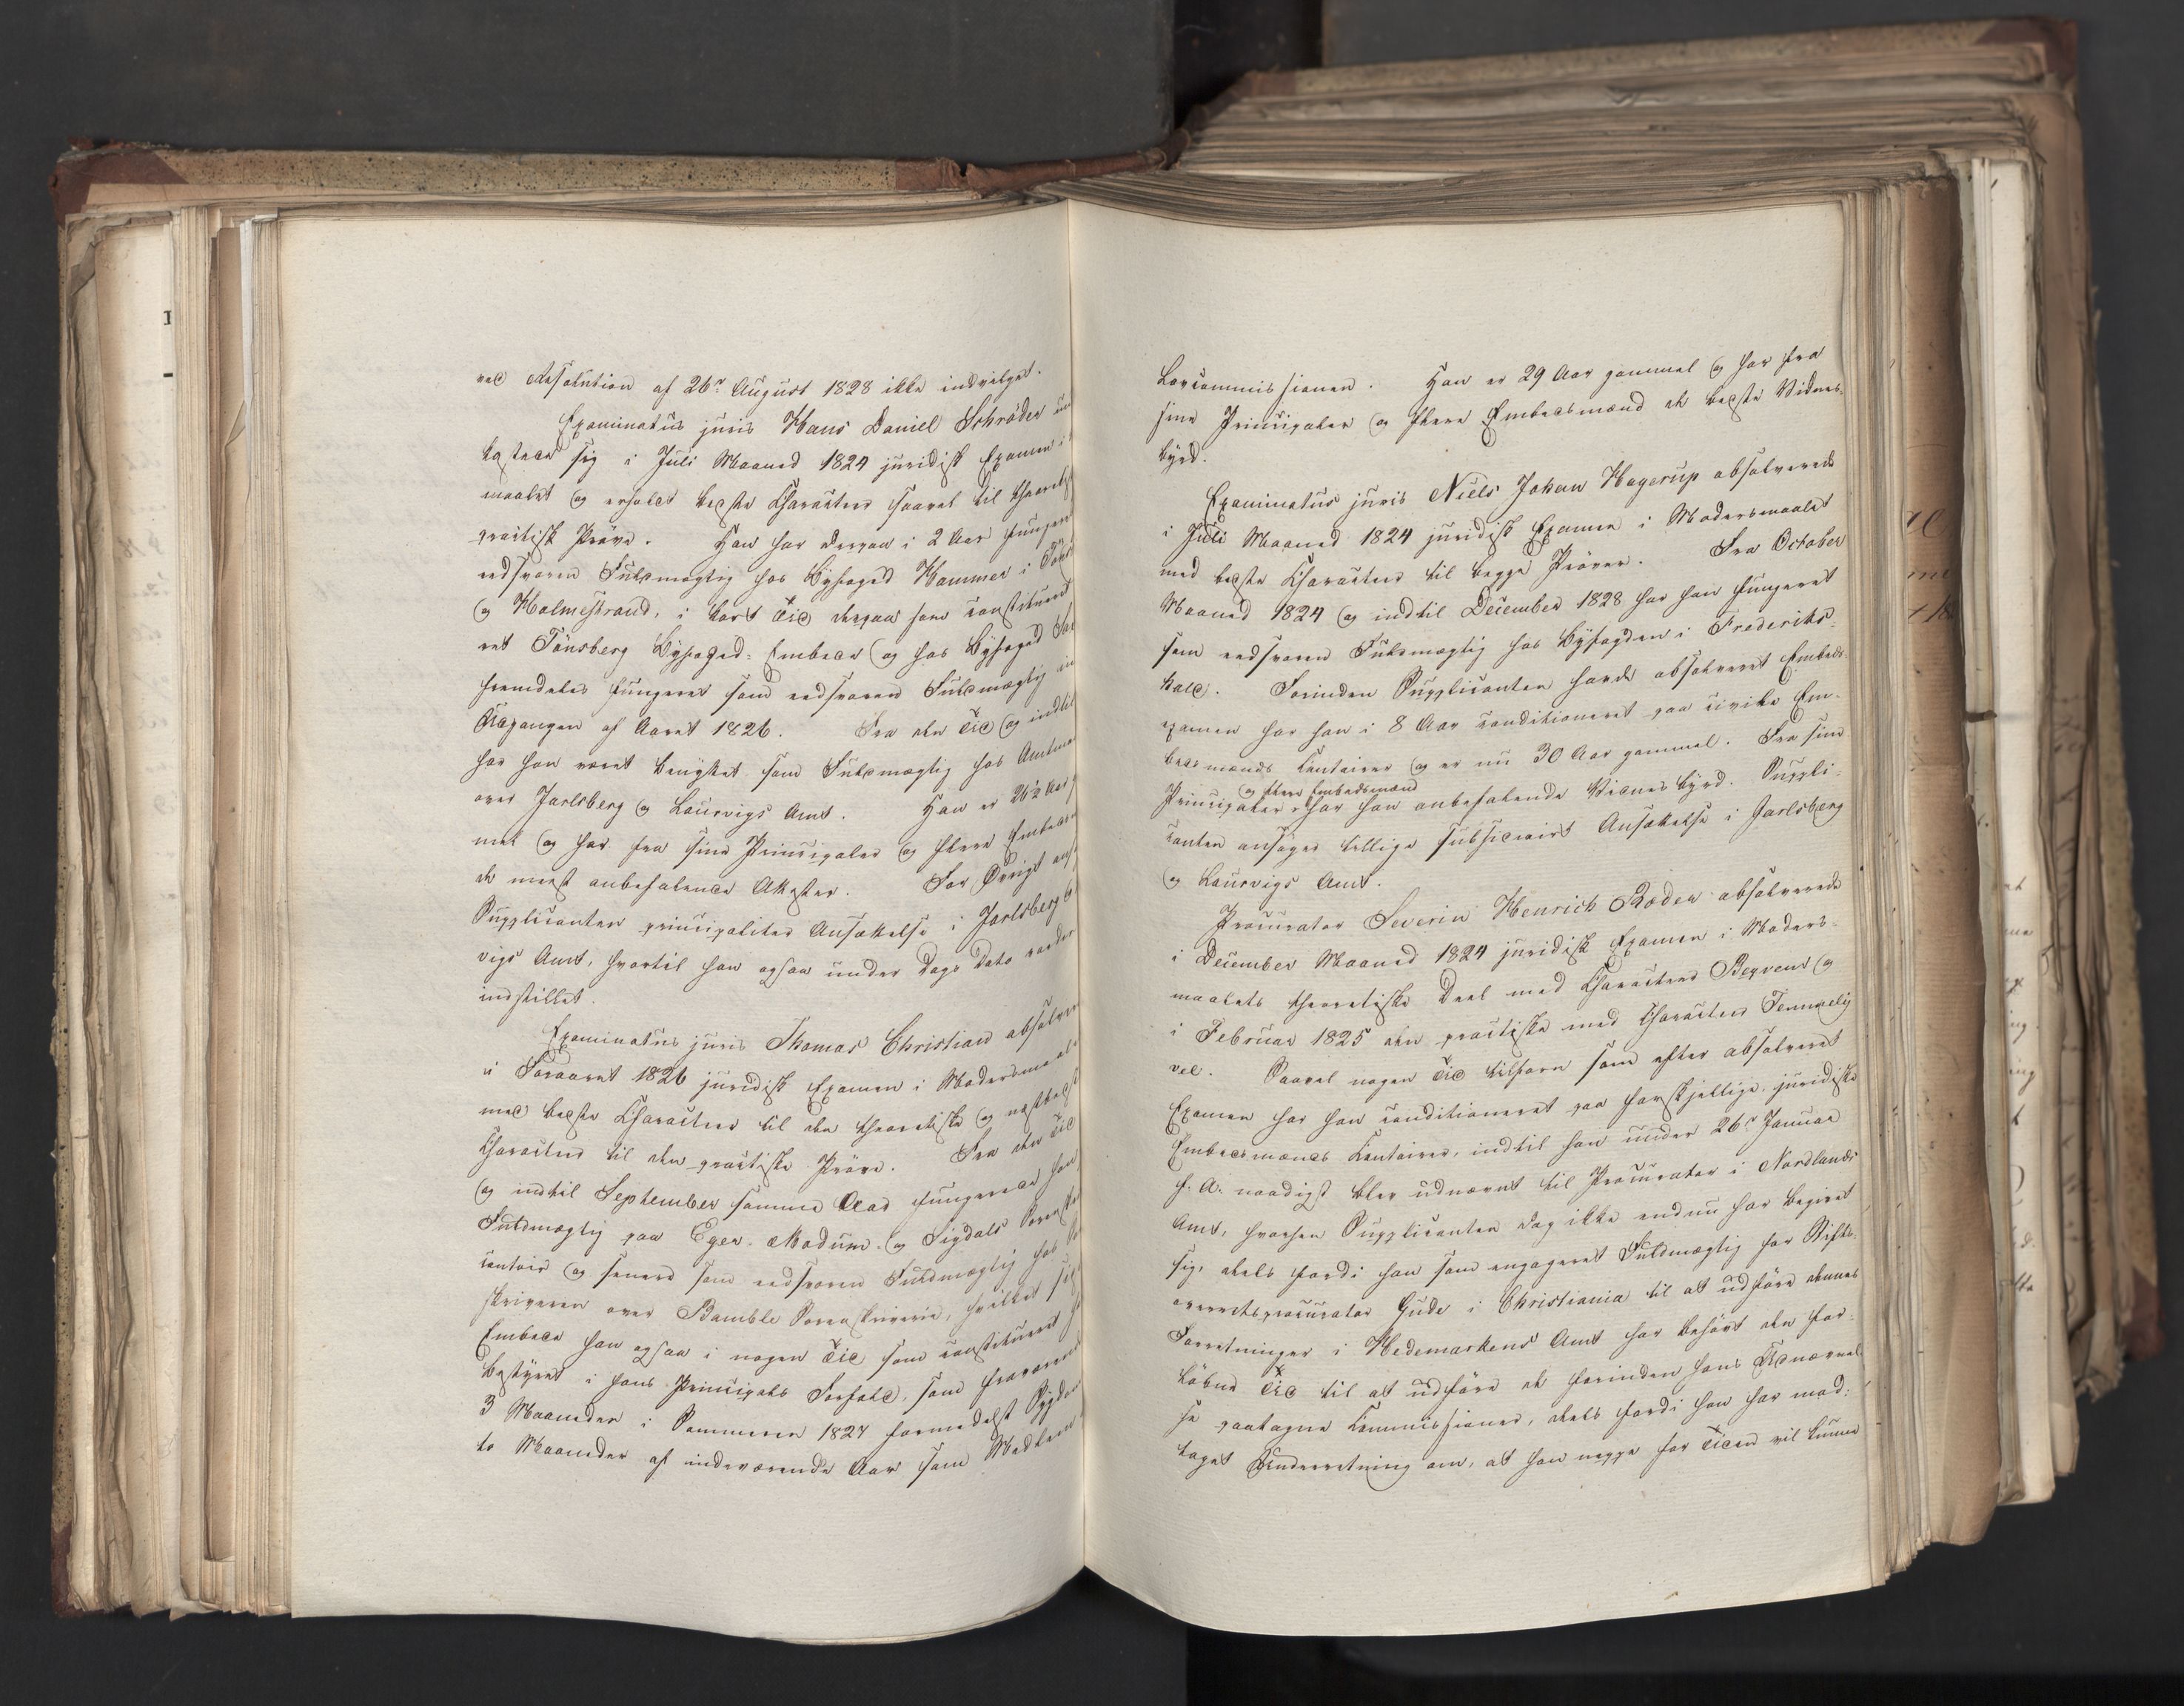 ved Resolution af 26de August 1828 ikke indvilget.
Examinatus juris Hans Daniel Schrøder un
kastede sig i Juli Maaned 1824 juridisk Examen i
maalet og erholdt beste Characteer saavel til theoretisk
practisk Prøve. Han har derpaa i 2 Aar fungeret
eedsvoren Fuldmægtig hos Byfoged Hammer i Töns
og Holmestrand, i kort Tid derpaa som constitueret
ret Tönsberg Byfoged-Embede og hos Byfoged
fremdeles fungeret som eedsvoren Fuldmægtig in
Udgangen af Aaret 1826. Fra den Tid og indtil
har han været benyttet som Fuldmægtig hos Amtma
over Jarlsberg og Laurvigs Amt. Han er 26½ Aar g
mel og har fra sine Principaler og flere Embeds
de meest anbefalende Attester. For Øvrigt ans
Supplicanten principaliter Ansættelse i Jarlsberg
vigs Amt, hvortil han ogsaa under Dags Dato vorder
indstillet.
Examinatus juris Thomas Christian absolve
i Foraaret 1826 juridisk Examen i Modersmaal
med beste Characteer til den theoretiske og næstbedst
Characteer til den practiske Prøve. Fra den Tid
og indtil September samme Aar fungerede han
Fuldmægtig paa Eger- Modum- og Sigdals Soren
contoir og senere som eedsvoren Fuldmægtig hos So
skriveren over Bamble Sorenskriverie, hvilket sids
Embede han ogsaa i nogen Tid som constitueret ha
bestyret i hans Principals Forfald, som fraværend
3 Maaneder i Sommeren 1827 formedelst Sygdom
to Maaneder af indeværende Aar som Medlem
Lovcommissionen. Han er 29 Aar gammel og har fra
sine Principaler og flere Embedsmænd de beste Vidnes-
byrd.
Examinatus juris Niels Johan Hagerup absolverede
i Juli Maaned 1824 juridisk Examen i Modersmaalet
med beste Characteer til begge Prøver. Fra October
Maaned 1824 og indtil December 1828 har han fungeret
som eedsvoren Fuldmægtig hos Byfogden i Frederiks-
hald. Forinden Supplicanten havde absolveret Embeds-
examen har han i 8 Aar conditioneret paa civile Em-
bedsmænds Contoirer og er nu 30 Aar gammel. Fra sine
og flere Embedsmænd
Principaler har han anbefalende Vidnesbyrd. Suppli-
canten ansøger tillige subsidiairt Ansættelse i Jarlsberg
og Laurvigs Amt.
Procurator Severin Henrich Roeder absolverede
i December Maaned 1824 juridisk Examen i Moders-
maalets theoretiske Deel med Characteer Beqvem og
i Februar 1825 den practiske med Characteer Temmelig
vel. Saavel nogen Tid tilforn som efter absolveret
Examen har han conditioneret paa forskjellige juridiske
Embedsmænds Contoirer, indtil han under 26de Januar
f. A. naadigst blev udnævnt til Procurator i Nordlands
Amt, hvorhen Supplicanten dog ikke endnu har begivet
sig, deels fordi han som engageret Fuldmægtig for Stifts-
overretsprocurator Gude i Christiania til at udføre dennes
Forretninger i Hedemarkens Amt har behøvet den for-
løbne Tid til at udføre de forinden hans Udnævnel-
se paatagne Commissioner, deels fordi han har mod-
taget Underretning om, at han neppe for Tiden vil kunne